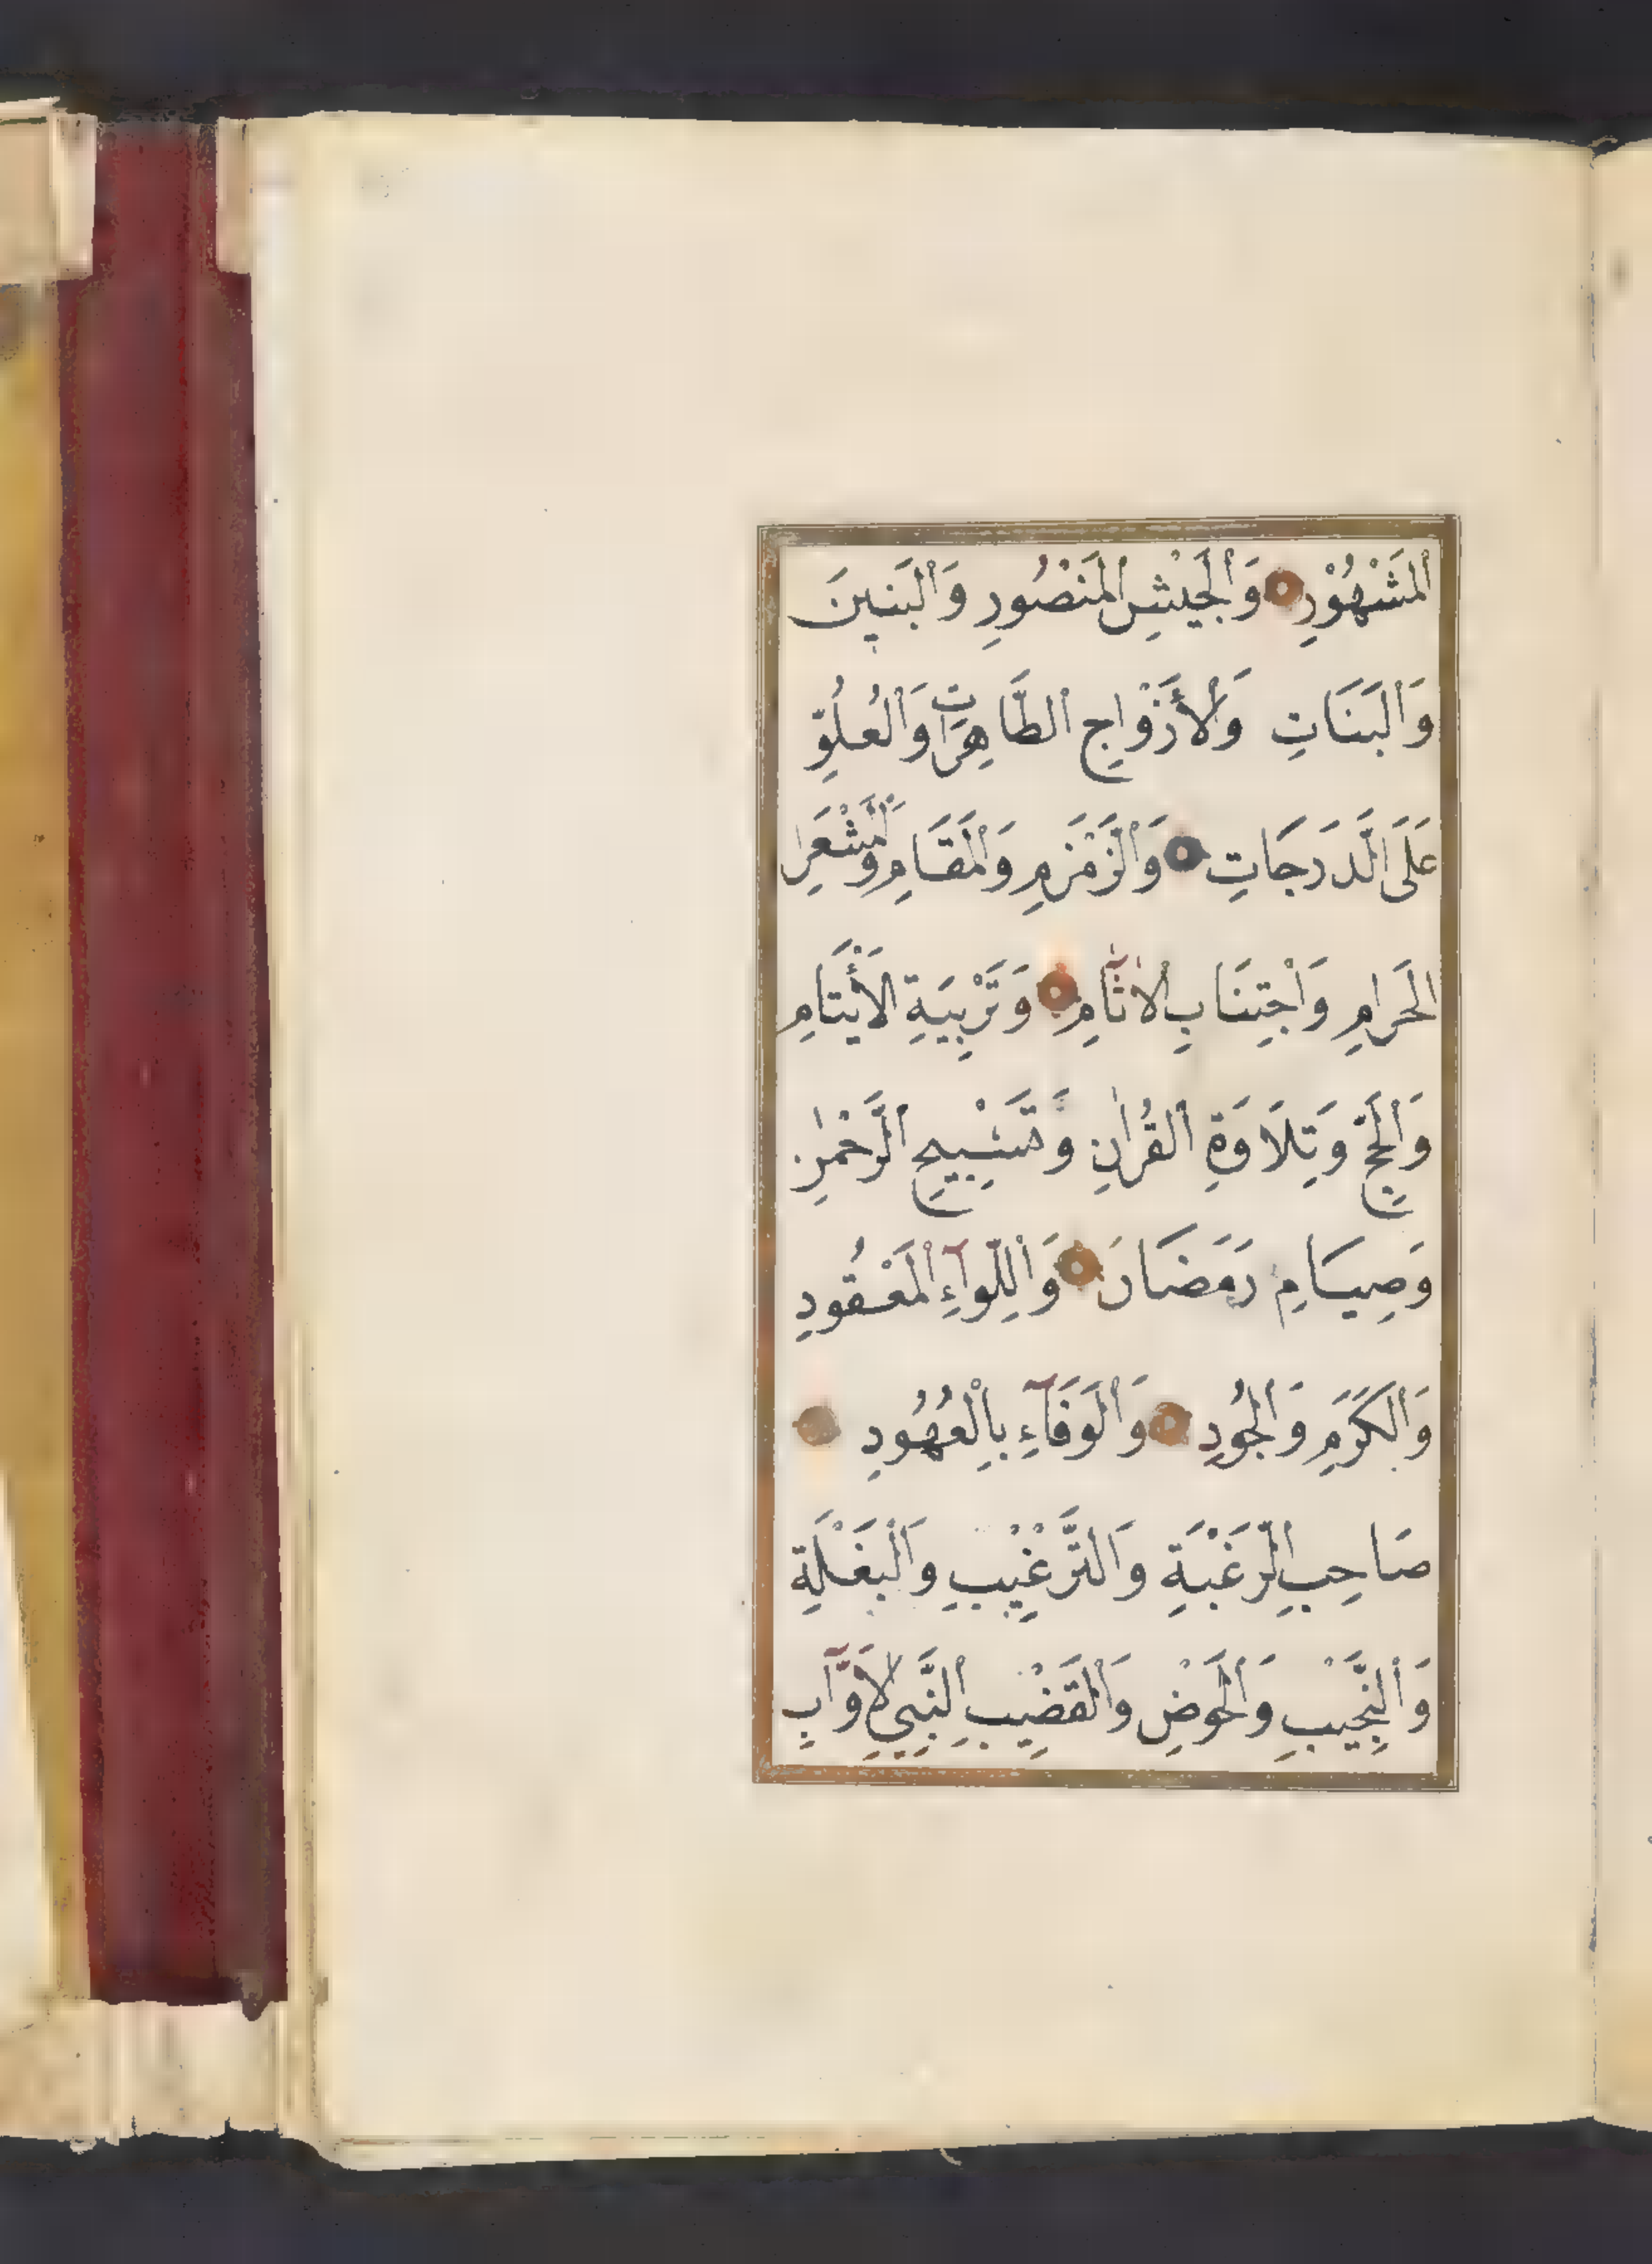 ٱلْمَشْهُوْرِ وَٱلْجَيْشِ ٱلْمَنْصُورِ وَٱلْبَنِينَ
وَٱلْبَنَاتِ وَٱلْأَزْوَاجِ ٱلطَّاهِرَاتِ وَٱلْعُلُوِّ
عَلَى الدَّرَجَاتِ وَٱلزَّمْزَمِ وَٱلْمَقَامِ وَٱلْمَشْعَرِ
الْحَرَامِ وَاجْتِنَابِ الْاٰثَامِ وَتَرْبِيَةِ الْأَيْتَامِ
وَٱلْحَجِّ وَتِلَاوَةِ ٱلْقُرْاٰنِ وَتَسْبِيحِ ٱلرَّحْمٰنِ
وَصِيَامِ رَمَضَانَ وَاللِّوَآءِ ٱلْمَعْقُودِ
وَٱلْكَرَمِ وَٱلْجُودِ وَٱلْوَفَآءِ بِالْعُهُودِ
صَاحِبِ ٱلرَّغْبَةِ وَالتَّرْغِيْبِ وَٱلْبَغْلَةِ
وَٱلنَّجِيْبِ وَٱلْحَوْضِ وَٱلْقَضِيْبِ ٱلنَّبِيِّ الْأَوَّابِ